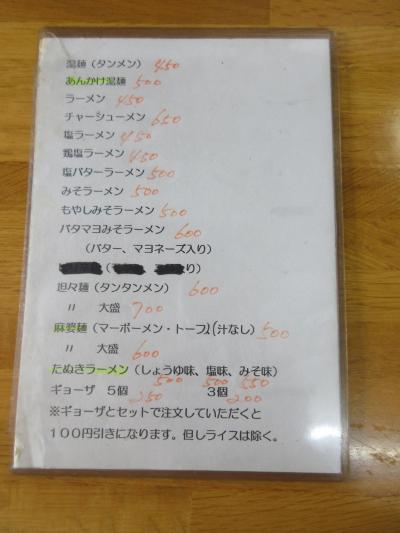 湯麺（タンメン） 450
あんかけ湯麺 500
ラーメン 450
チャーシューメン 650
塩ラーメン 450
鶏塩ラーメン 450
塩バターラーメン 500
みそラーメン 500
もやしみそラーメン 500
バタマヨみそラーメン 600
（バター、マヨネーズ入り）
り）
坦々麺（タンタンメン） 600
〃 大盛 700
麻婆麺（マーボーメン・トーフ入）（汁なし） 500
〃 大盛 600
たぬきラーメン（しょうゆ味、塩味、みそ味）
500 500 550
ギョーザ 5個 3個
250 200
※ギョーザとセットで注文していただくと
１００円引きになります。但しライスは除く。